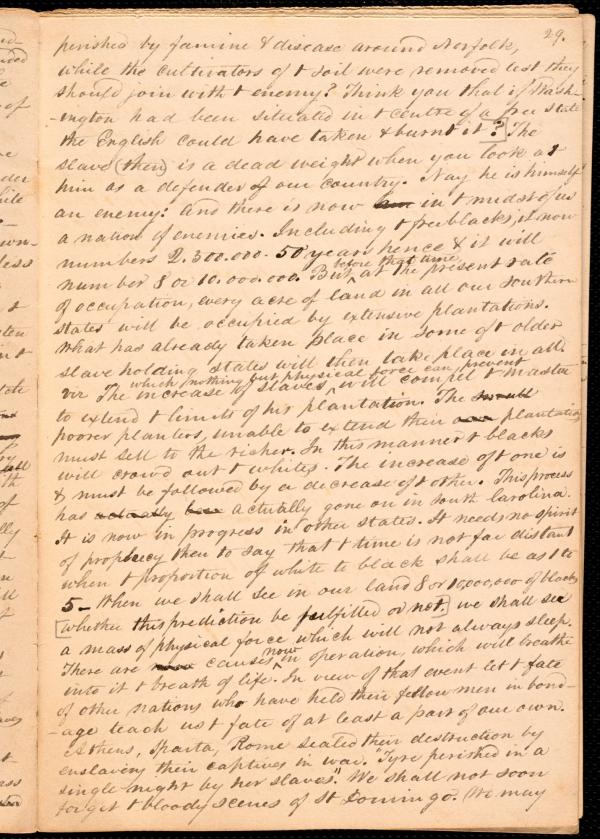 29.
perished by famine & disease around Norfolk,
while the cultivators of t soil were removed lest they
should join with t enemy? Think you that if Wash-
-ington had been situated in t centre of a free state
the English could have taken & burnt it? The
slave (then) is a dead weight when you look at
him as a defender of our country. Nay he is himself
an enemy: and there is now in t midst of us
a nation of enemies. Including t free blacks, it now
numbers 2.300.000. 50 years hence & it will
before that time
number 8 or 10.000.000. But, at the present rate
of occupation, every acre of land in all our southern
states will be occupied by extensive plantations.
What has already taken place in some of t older
slave holding states will then take place in all.
which, nothing but physical force can, prevent
viz The increase of slaves will compel t master
to extend t limits of his plantation. The small
poorer planters, unable to extend their own plantations
must sell to the richer. In this manner t blacks
will crowd out t whites. The increase of t one is
& must be followed by a decrease of t other. This process
has actually been actually gone on in South Carolina.
It is now in progress in other states. It needs no spirit
of prophecy then to say that t time is not far distant
when t proportion of white to black shall be as 1 to
5 - When we shall see in our land 8 or 10,000,000 of blacks
[whether this prediction be fulfilled or not,] we shall see
a mass of physical force which will not always sleep.
now
There are causes in operation, which will breathe
into it t breath of life. In view of that event let t fate
of other nations who have held their fellow men in bond-
-age teach us t fate of at least a part of our own.
Athens, Sparta, Rome sealed their destruction by
enslaving their captives in war. "Tyre perished in a
single night by her slaves". We shall not soon
forget t bloody scenes of St Domingo. We may